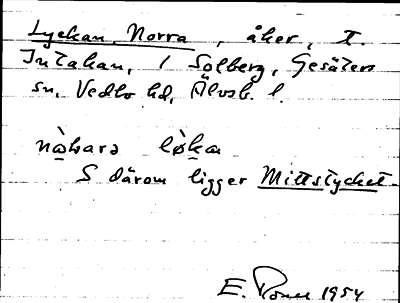 Lyckan, Norra, åker, t.
Intakan, 1 Solberg, Gesäters
sn, Vedbo hd, Älvsb. l.
nò̱hara lø̱̀ka
S därom ligger Mittstycket.
E. 1954